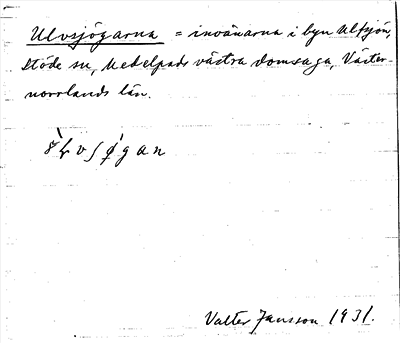 Ulvsjögarna = invånarna i byn Ulfsjön,
Stöde sn, Medelpads västra domsaga, Väster-
norrlands län.
Valter Jansson 1931.